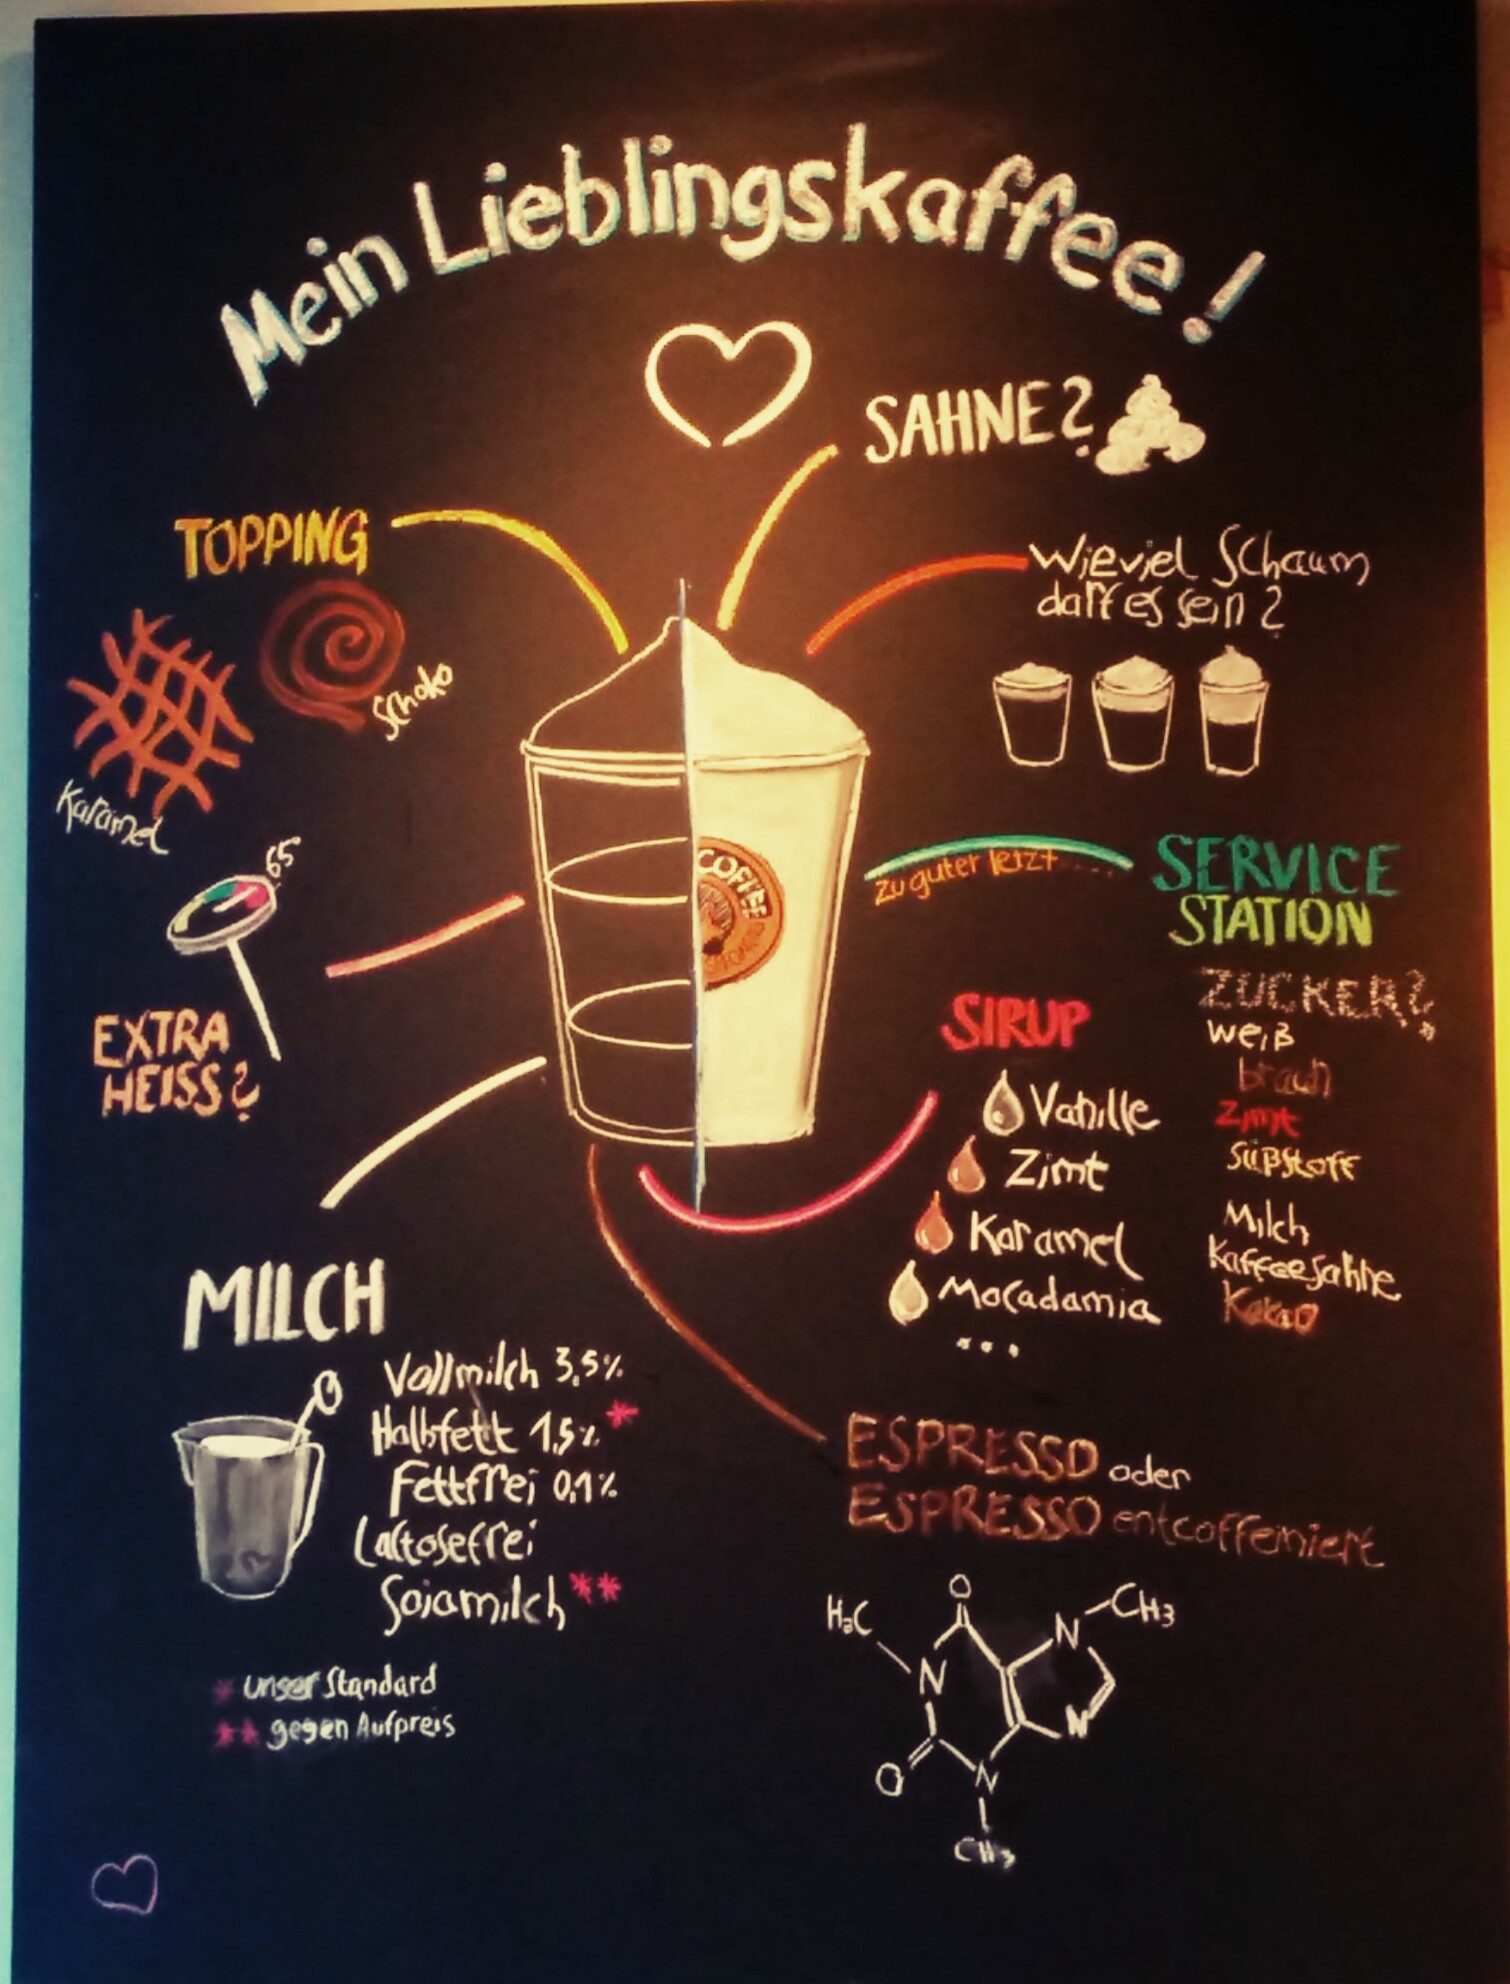 Mein Lieblingskaffee!
SAHNE?
TOPPING
Schoko
Karamel
Wieviel Schaum
darf es sein?
65°
EXTRA
HEISS?
COFFEE
zu guter letzt...
SERVICE
STATION
ZUCKER?
weiß
braun
Zimt
Süßstoff
Milch
Kaffeesahne
Kakao
SIRUP
Vanille
Zimt
Karamel
Macadamia
...
MILCH
Vollmilch 3,5%
Halbfett 1,5% *
Fettfrei 0,1%
Lactosefrei
Sojamilch **
* unser Standard
** gegen Aufpreis
ESPRESSO oder
ESPRESSO entcoffeiniert
H3C
O
N
CH3
N
N
O
N
CH3